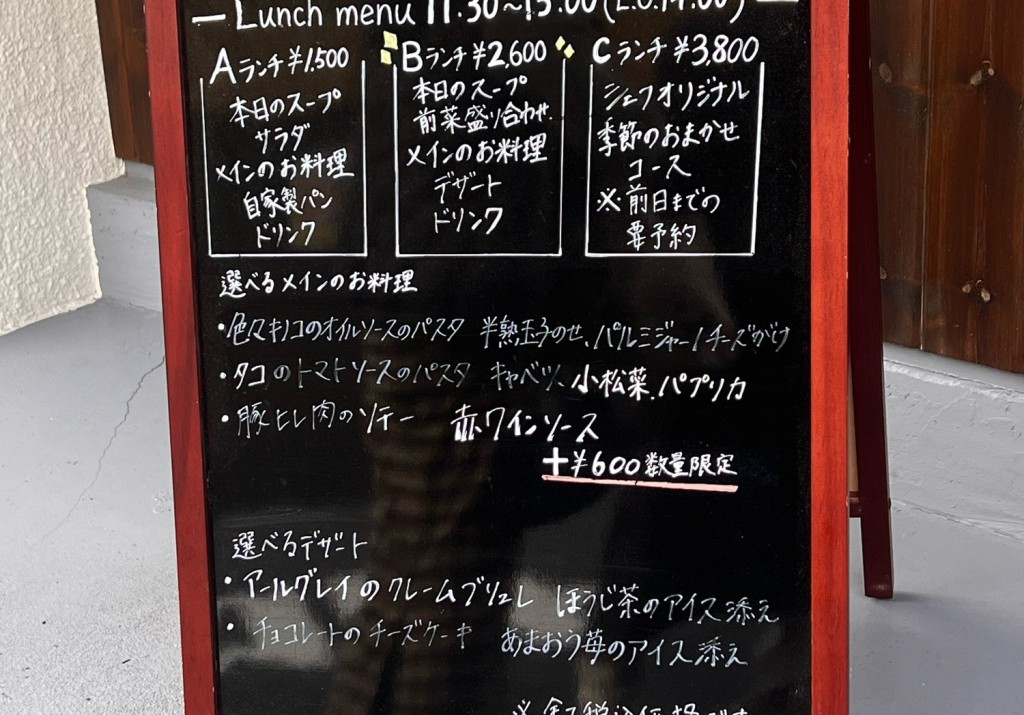 Lunch menu 11:30~15:00(L.O.14:00)
Aランチ¥1,500
本日のスープ
サラダ
メインのお料理
自家製パン
ドリンク
Bランチ¥2,600
本日のスープ
前菜盛り合わせ
メインのお料理
デザート
ドリンク
Cランチ¥3,800
シェフオリジナル
季節のおまかせ
コース
※前日までの
要予約
選べるメインのお料理
・色々キノコのオイルソースのパスタ 半熟玉子のせ、パルミジャーノチーズがけ
・タコのトマトソースのパスタ キャベツ、小松菜、パプリカ
・豚ヒレ肉のソテー 赤ワインソース
+¥600数量限定
選べるデザート
・アールグレイのクレームブリュレ ほうじ茶のアイス添え
・チョコレートのチーズケーキ あまおう苺のアイス添え